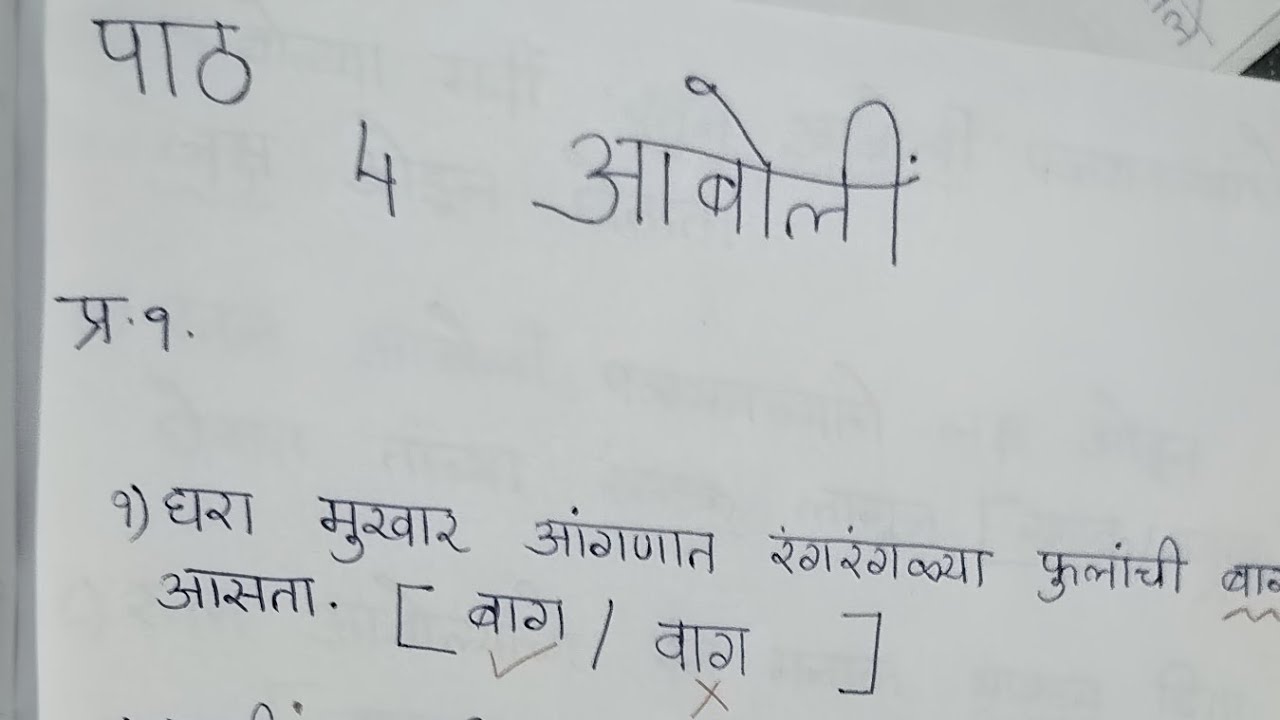 पाठ
4 आबोलीं
प्र.१.
१) घरा मुखार आंगणात रंगरंगळ्या फुलांची बाग
आसता. [ बाग / वाग ]